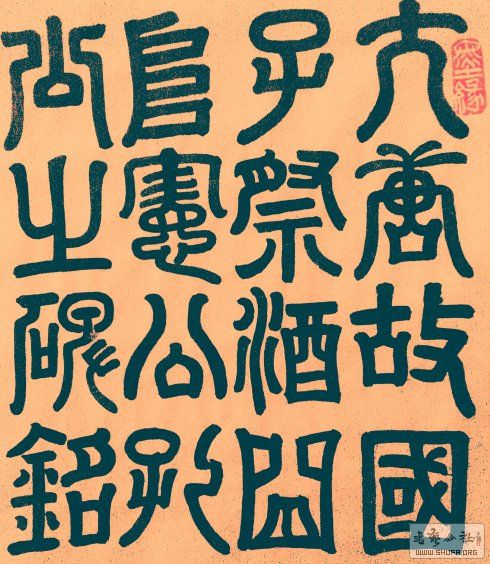 大唐故國
子祭酒曲
阜憲公孔
公之碑銘
WWW.SHUFA.ORG